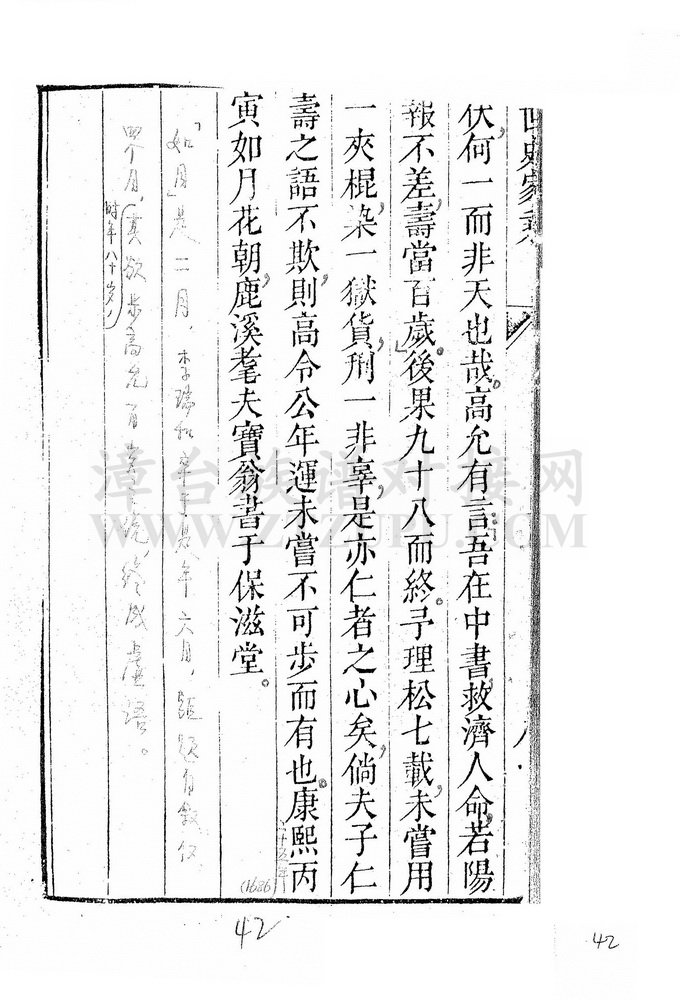 伏何一而非天也哉。高允有言吾在中書救濟人命若陽
報不差壽當百歲。」後果九十八而終。予理松七載未嘗用
一夾棍染一獄貨刑一非辜是亦仁者之心矣倘夫子仁
壽之語不欺則高令公年運未嘗不可步而有也。康熙丙
(1686)
寅如月花朝鹿溪耄夫寶翁書于保滋堂。
「如月」是二月,李瑞和卒于是年六月,距題自敘仅
四个月,
(时年八十岁)
其欲步高允百岁
終成虛語。
漳台族谱对接网
WWW.ZTZUPU.COM
42
42